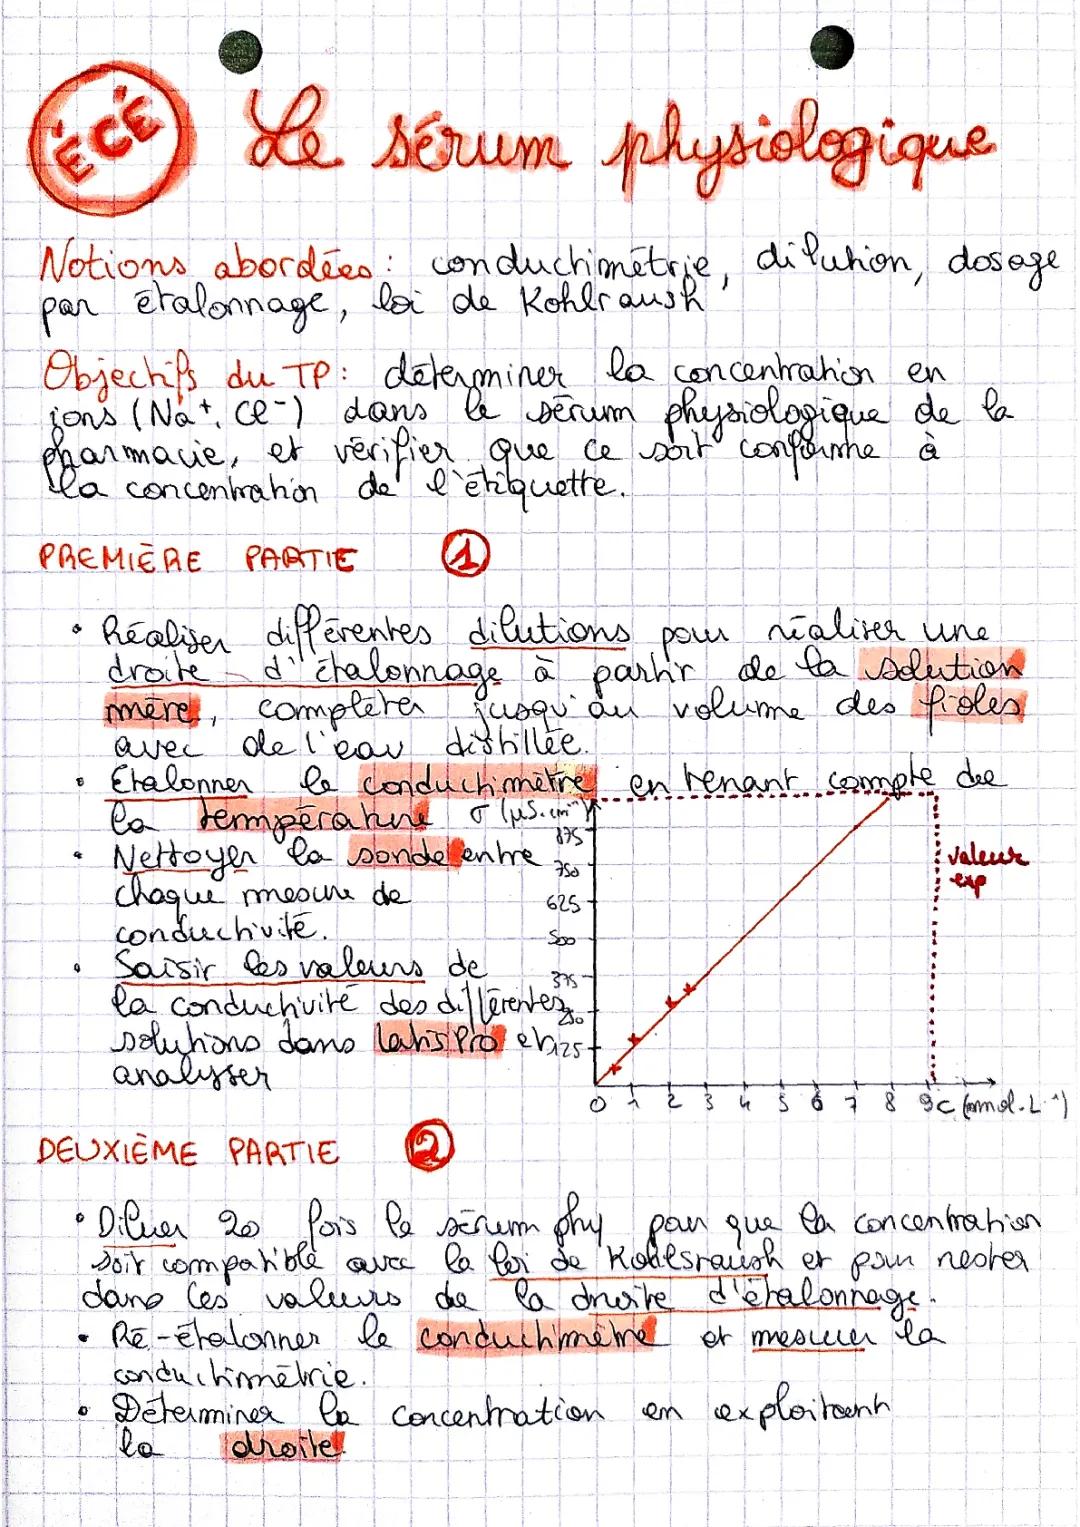 ÉCÉ
Le sérum physiologique
Notions abordées : conductimétrie, dilution, dosage
par étalonnage, loi de Kohlraush
Objectifs du TP : déterminer la concentration en
ions (Na+, Cl-) dans le sérum physiologique de la
pharmacie, et vérifier que ce soit conforme à
la concentration de l'étiquette.
PREMIÈRE PARTIE 1
• Réaliser différentes dilutions pour réaliser une
droite d'étalonnage à partir de la solution
mère, compléter jusqu'au volume des fioles
avec de l'eau distillée.
• Étalonner le conductimètre en tenant compte de
la température
• Nettoyer la sonde entre
chaque mesure de
conductivité.
• Saisir les valeurs de
la conductivité des différentes
solutions dans LatisPro et
analyser
σ (µS.cm-1)
875
750
625
500
375
250
125
0 1 2 3 4 5 6 7 8 9 C (mmol.L-1)
valeur
exp
DEUXIÈME PARTIE 2
• Diluer 20 fois le sérum phy pour que la concentration
soit compatible avec la loi de Kohlsraush et pour rester
dans les valeurs de la droite d'étalonnage.
• Ré-étalonner le conductimètre et mesurer la
conductimétrie.
• Déterminer la concentration en exploitant
la droite